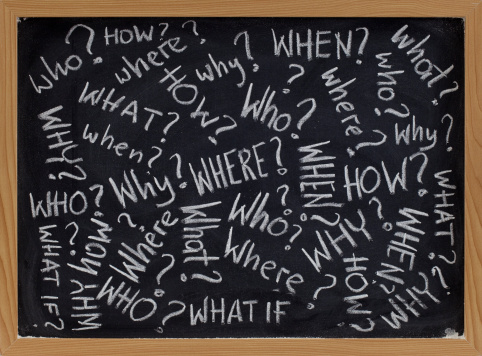 who?
HOW?
where?
why?
WHEN?
what?
who?
WHAT?
HOW?
WHO?
where?
why?
WHY?
when?
Why?
WHERE?
WHEN?
HOW?
WHAT?
WHO?
Where?
What?
Who?
WHY?
WHEN?
WHAT IF?
HOW?
WHY?
WHO?
Where?
WHAT IF
HOW?
WHY?